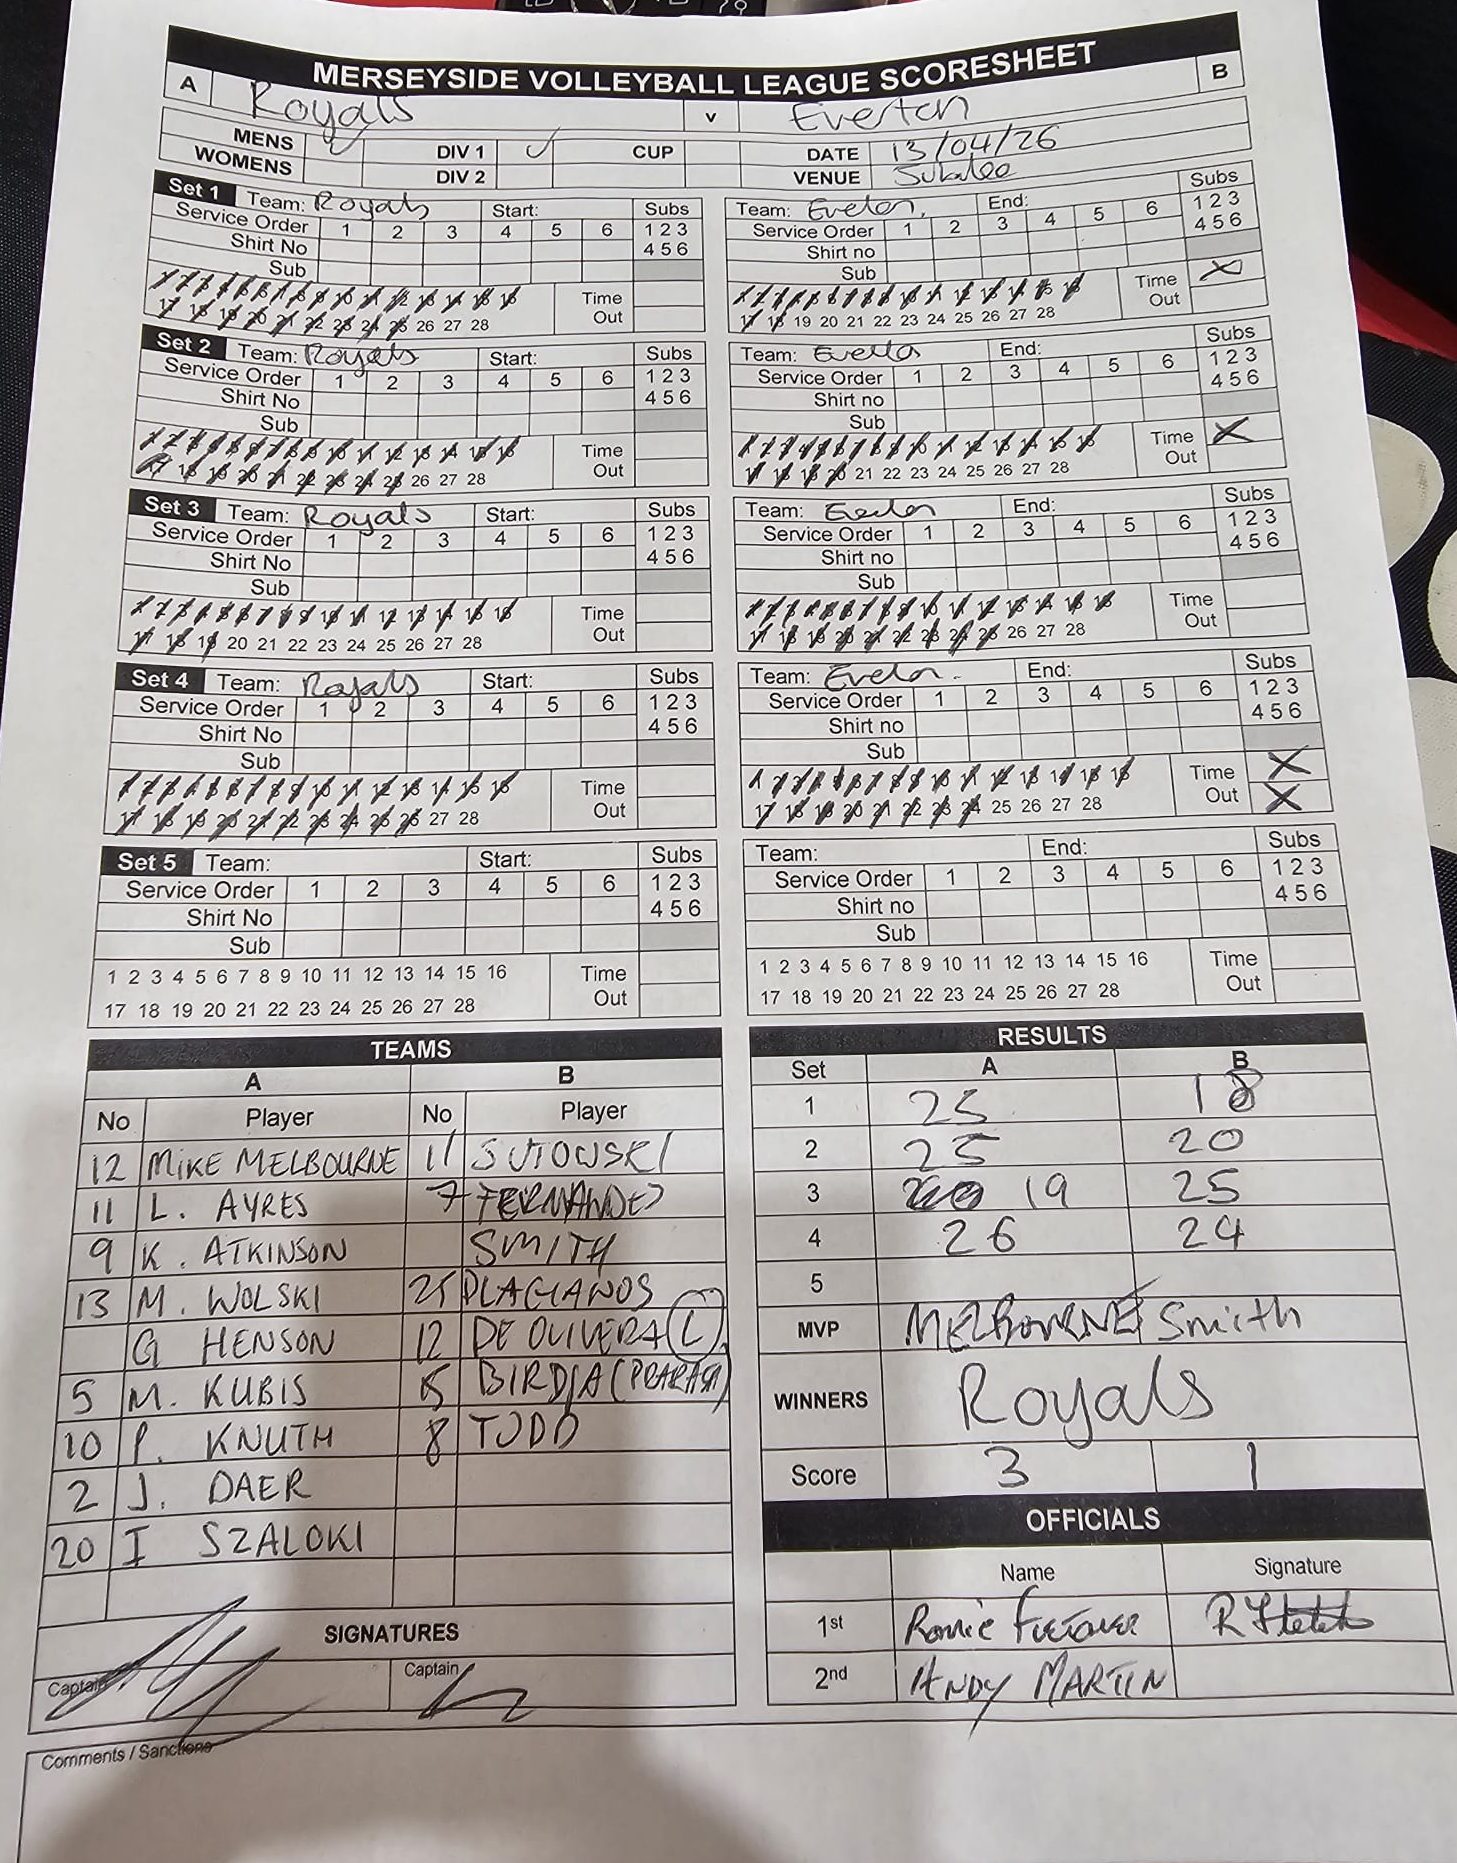 MERSEYSIDE VOLLEYBALL LEAGUE SCORESHEET
A Royals v Everton B
MENS ✓ DIV 1 ✓ CUP DATE 13/04/26
WOMENS DIV 2 VENUE
Set 1 Team: Royals Start: Subs
Service Order 1 2 3 4 5 6 1 2 3
Shirt No 4 5 6
Sub
1 2 3 4 5 6 7 8 9 10 11 12 13 14 15 16 Time
17 18 19 20 21 22 23 24 25 26 27 28 Out
Team: Everton. End: Subs
Service Order 1 2 3 4 5 6 1 2 3
Shirt no 4 5 6
Sub
1 2 3 4 5 6 7 8 9 10 11 12 13 14 15 16 Time X
17 18 19 20 21 22 23 24 25 26 27 28 Out
Set 2 Team: Royals Start: Subs
Service Order 1 2 3 4 5 6 1 2 3
Shirt No 4 5 6
Sub
1 2 3 4 5 6 7 8 9 10 11 12 13 14 15 16 Time
17 18 19 20 21 22 23 24 25 26 27 28 Out
Team: Everton End: Subs
Service Order 1 2 3 4 5 6 1 2 3
Shirt no 4 5 6
Sub
1 2 3 4 5 6 7 8 9 10 11 12 13 14 15 16 Time X
17 18 19 20 21 22 23 24 25 26 27 28 Out
Set 3 Team: Royals Start: Subs
Service Order 1 2 3 4 5 6 1 2 3
Shirt No 4 5 6
Sub
1 2 3 4 5 6 7 8 9 10 11 12 13 14 15 16 Time
17 18 19 20 21 22 23 24 25 26 27 28 Out
Team: Everton End: Subs
Service Order 1 2 3 4 5 6 1 2 3
Shirt no 4 5 6
Sub
1 2 3 4 5 6 7 8 9 10 11 12 13 14 15 16 Time
17 18 19 20 21 22 23 24 25 26 27 28 Out
Set 4 Team: Royals Start: Subs
Service Order 1 2 3 4 5 6 1 2 3
Shirt No 4 5 6
Sub
1 2 3 4 5 6 7 8 9 10 11 12 13 14 15 16 Time
17 18 19 20 21 22 23 24 25 26 27 28 Out
Team: Everton. End: Subs
Service Order 1 2 3 4 5 6 1 2 3
Shirt no 4 5 6
Sub
1 2 3 4 5 6 7 8 9 10 11 12 13 14 15 16 Time X
17 18 19 20 21 22 23 24 25 26 27 28 Out X
Set 5 Team: Start: Subs
Service Order 1 2 3 4 5 6 1 2 3
Shirt No 4 5 6
Sub
1 2 3 4 5 6 7 8 9 10 11 12 13 14 15 16 Time
17 18 19 20 21 22 23 24 25 26 27 28 Out
Team: End: Subs
Service Order 1 2 3 4 5 6 1 2 3
Shirt no 4 5 6
Sub
1 2 3 4 5 6 7 8 9 10 11 12 13 14 15 16 Time
17 18 19 20 21 22 23 24 25 26 27 28 Out
TEAMS
A B
No Player No Player
12 MIKE MELBOURNE 11 SUTOWSKI
11 L. AYRES 7 FERNANDES
9 K. ATKINSON SMITH
13 M. WOLSKI 25 PLAGIANOS
G HENSON 12 DE OLIVERA (L)
5 M. KUBIS 15 BIRDJA
10 P. KNUTH 8 TODD
2 J. DAER
20 I SZALOKI
SIGNATURES
Captain Captain
Comments / Sanctions
RESULTS
Set A B
1 25 18
2 25 20
3 19 25
4 26 24
5
MVP MELBOURNE Smith
WINNERS Royals
Score 3 1
OFFICIALS
Name Signature
1st Ronnie
2nd ANDY MARTIN